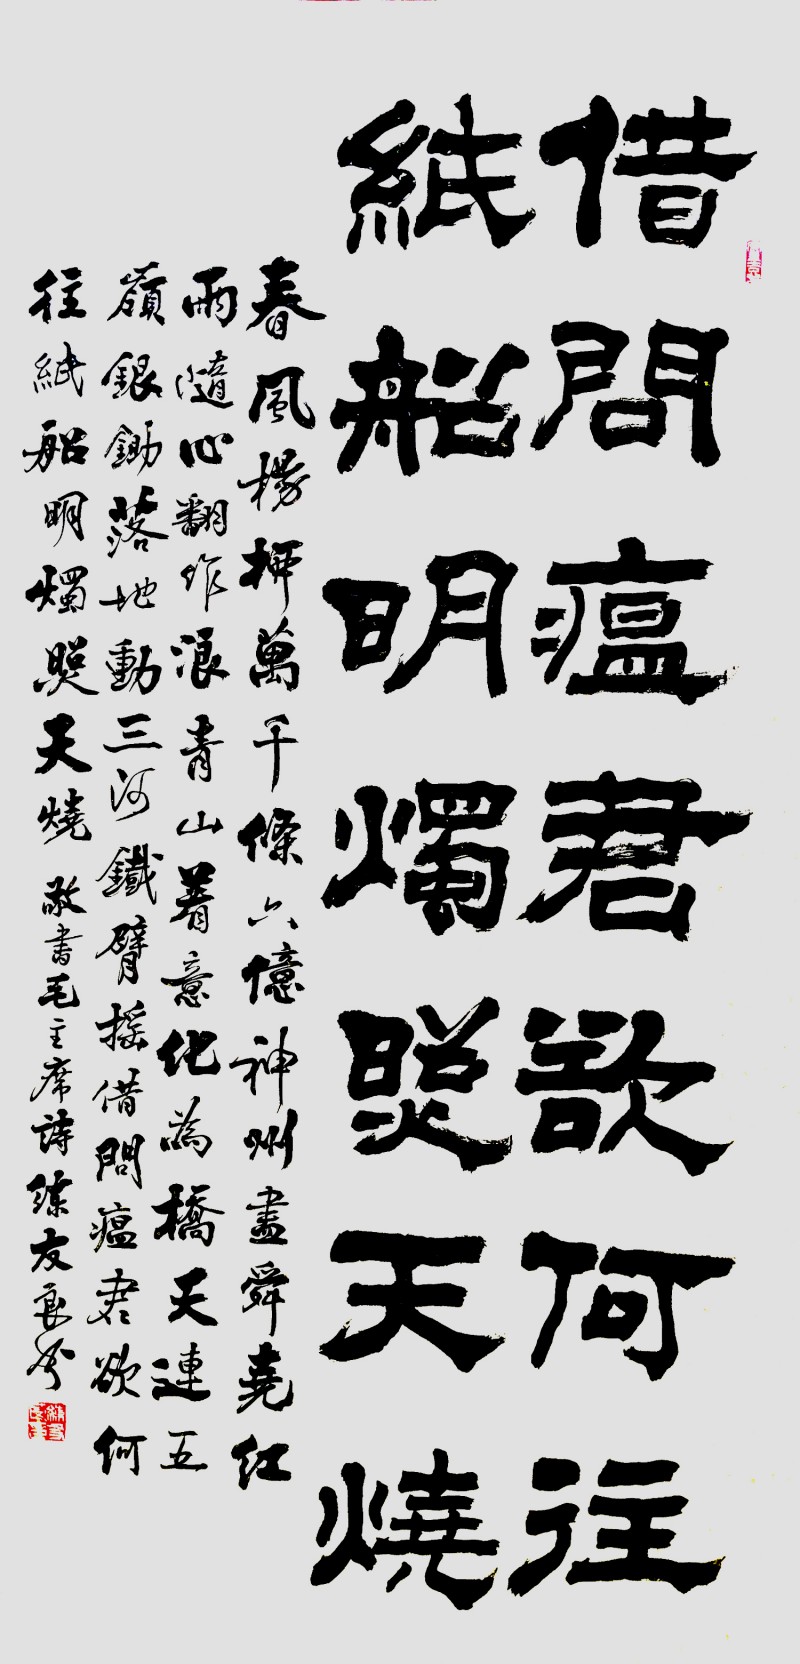 借問瘟君欲何往
紙船明燭照天燒
春風楊柳萬千條六億神州盡舜堯紅
雨隨心翻作浪青山著意化為橋天連五
嶺銀鋤落地動三河鐵臂搖借問瘟君欲何
往紙船明燭照天燒敬書毛主席詩練友良书